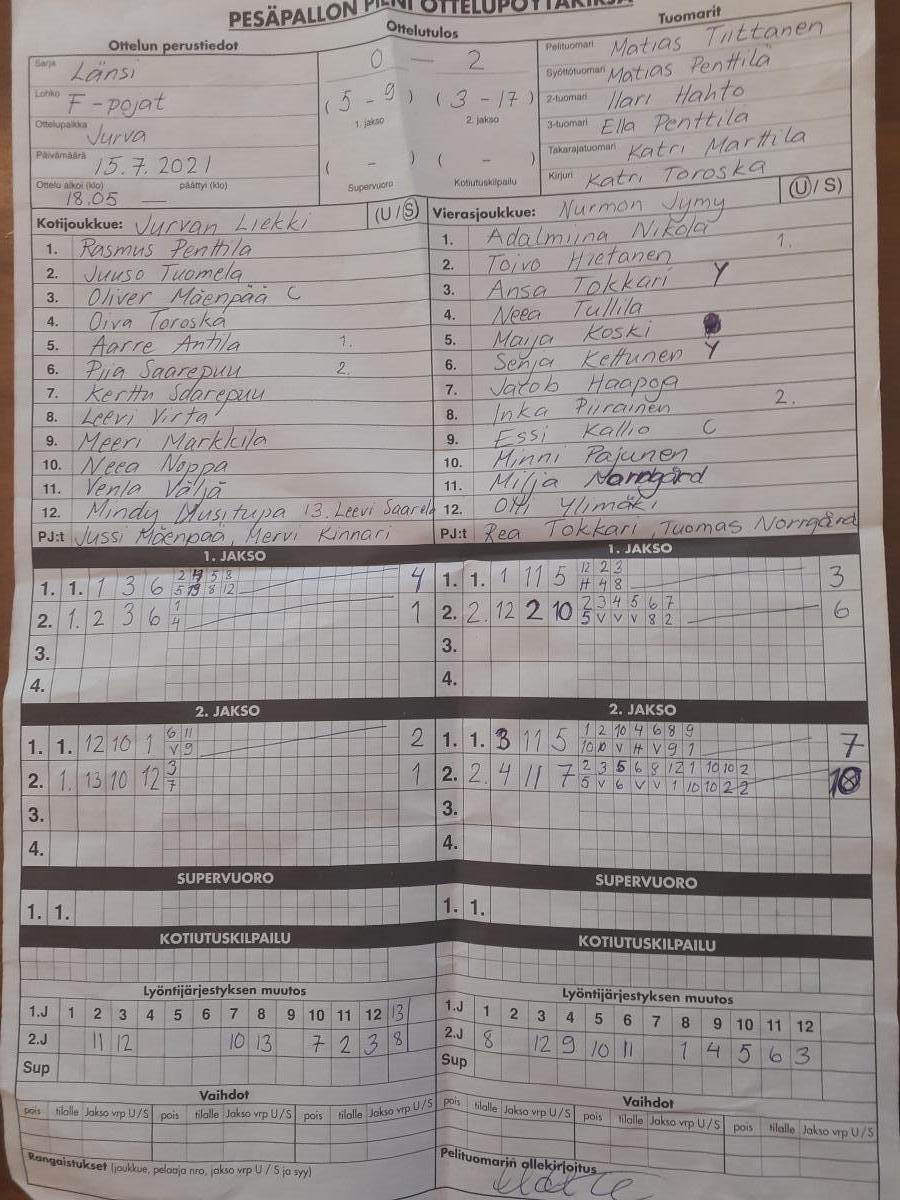 PESÄPALLON PIENI OTTELUPÖYTÄKIRJA
Ottelun perustiedot
Sarja Länsi
Lohko F-pojat
Ottelupaikka Jurva
Päivämäärä 15.7.2021
Ottelu alkoi (klo) päättyi (klo)
18.05 —
Ottelutulos
0 — 2
( 5 - 9 ) ( 3 - 17 )
1. jakso 2. jakso
( - ) ( - )
Supervuoro Kotiutuskilpailu
Tuomarit
Pelituomari Matias Tiittanen
Syöttötuomari Matias Penttilä
2-tuomari Ilari Hahto
3-tuomari Ella Penttilä
Takarajatuomari Katri Marttila
Kirjuri Katri Toroska
Kotijoukkue: Jurvan Liekki (U/S)
1. Rasmus Penttilä
2. Juuso Tuomela
3. Oliver Mäenpää C
4. Oiva Toroska
5. Aarre Antila 1.
6. Piia Saarepuu 2.
7. Kerttu Saarepuu
8. Leevi Virta
9. Meeri Markkila
10. Neea Noppa
11. Venla Väljä
12. Mindy Musitupa 13. Leevi Saarela
PJ:t Jussi Mäenpää, Mervi Kinnari
Vierasjoukkue: Nurmon Jymy (U/S)
1. Adalmiina Nikola 1.
2. Toivo Hietanen
3. Ansa Tokkari Y
4. Neea Tullila
5. Maija Koski
6. Senja Kettunen Y
7. Jacob Haapoja
8. Inka Piirainen 2.
9. Essi Kallio C
10. Minni Pajunen
11. Milja Norrgård
12. Otti Ylimäki
PJ:t Rea Tokkari, Tuomas Norrgård
1. JAKSO
1. 1. 1 3 6 2 4 5 8 4
5 13 8 12
2. 1. 2 3 6 1 1
4
3.
4.
1. JAKSO
1. 1. 1 11 5 12 2 3 3
H 4 8
2. 2. 12 2 10 2 3 4 5 6 7 6
5 V V V 8 2
3.
4.
2. JAKSO
1. 1. 12 10 1 6 11 2
V 9
2. 1. 13 10 12 3 1
7
3.
4.
2. JAKSO
1. 1. 3 11 5 1 2 10 4 6 8 9 7
10 10 V H V 9 1
2. 2. 4 11 7 2 3 5 6 8 12 1 10 10 2 10
5 V 6 V V 1 10 10 2 2
3.
4.
SUPERVUORO
1. 1.
SUPERVUORO
1. 1.
KOTIUTUSKILPAILU
KOTIUTUSKILPAILU
Lyöntijärjestyksen muutos
1.J 1 2 3 4 5 6 7 8 9 10 11 12 13
2.J 11 12 10 13 7 2 3 8
Sup
Lyöntijärjestyksen muutos
1.J 1 2 3 4 5 6 7 8 9 10 11 12
2.J 8 12 9 10 11 1 4 5 6 3
Sup
Vaihdot
pois tilalle Jakso vrp U/S pois tilalle Jakso vrp U/S pois tilalle Jakso vrp U/S
Vaihdot
pois tilalle Jakso vrp U/S pois tilalle Jakso vrp U/S pois tilalle Jakso vrp U/S
Rangaistukset (joukkue, pelaaja nro, jakso vrp U / S ja syy)
Pelituomarin allekirjoitus